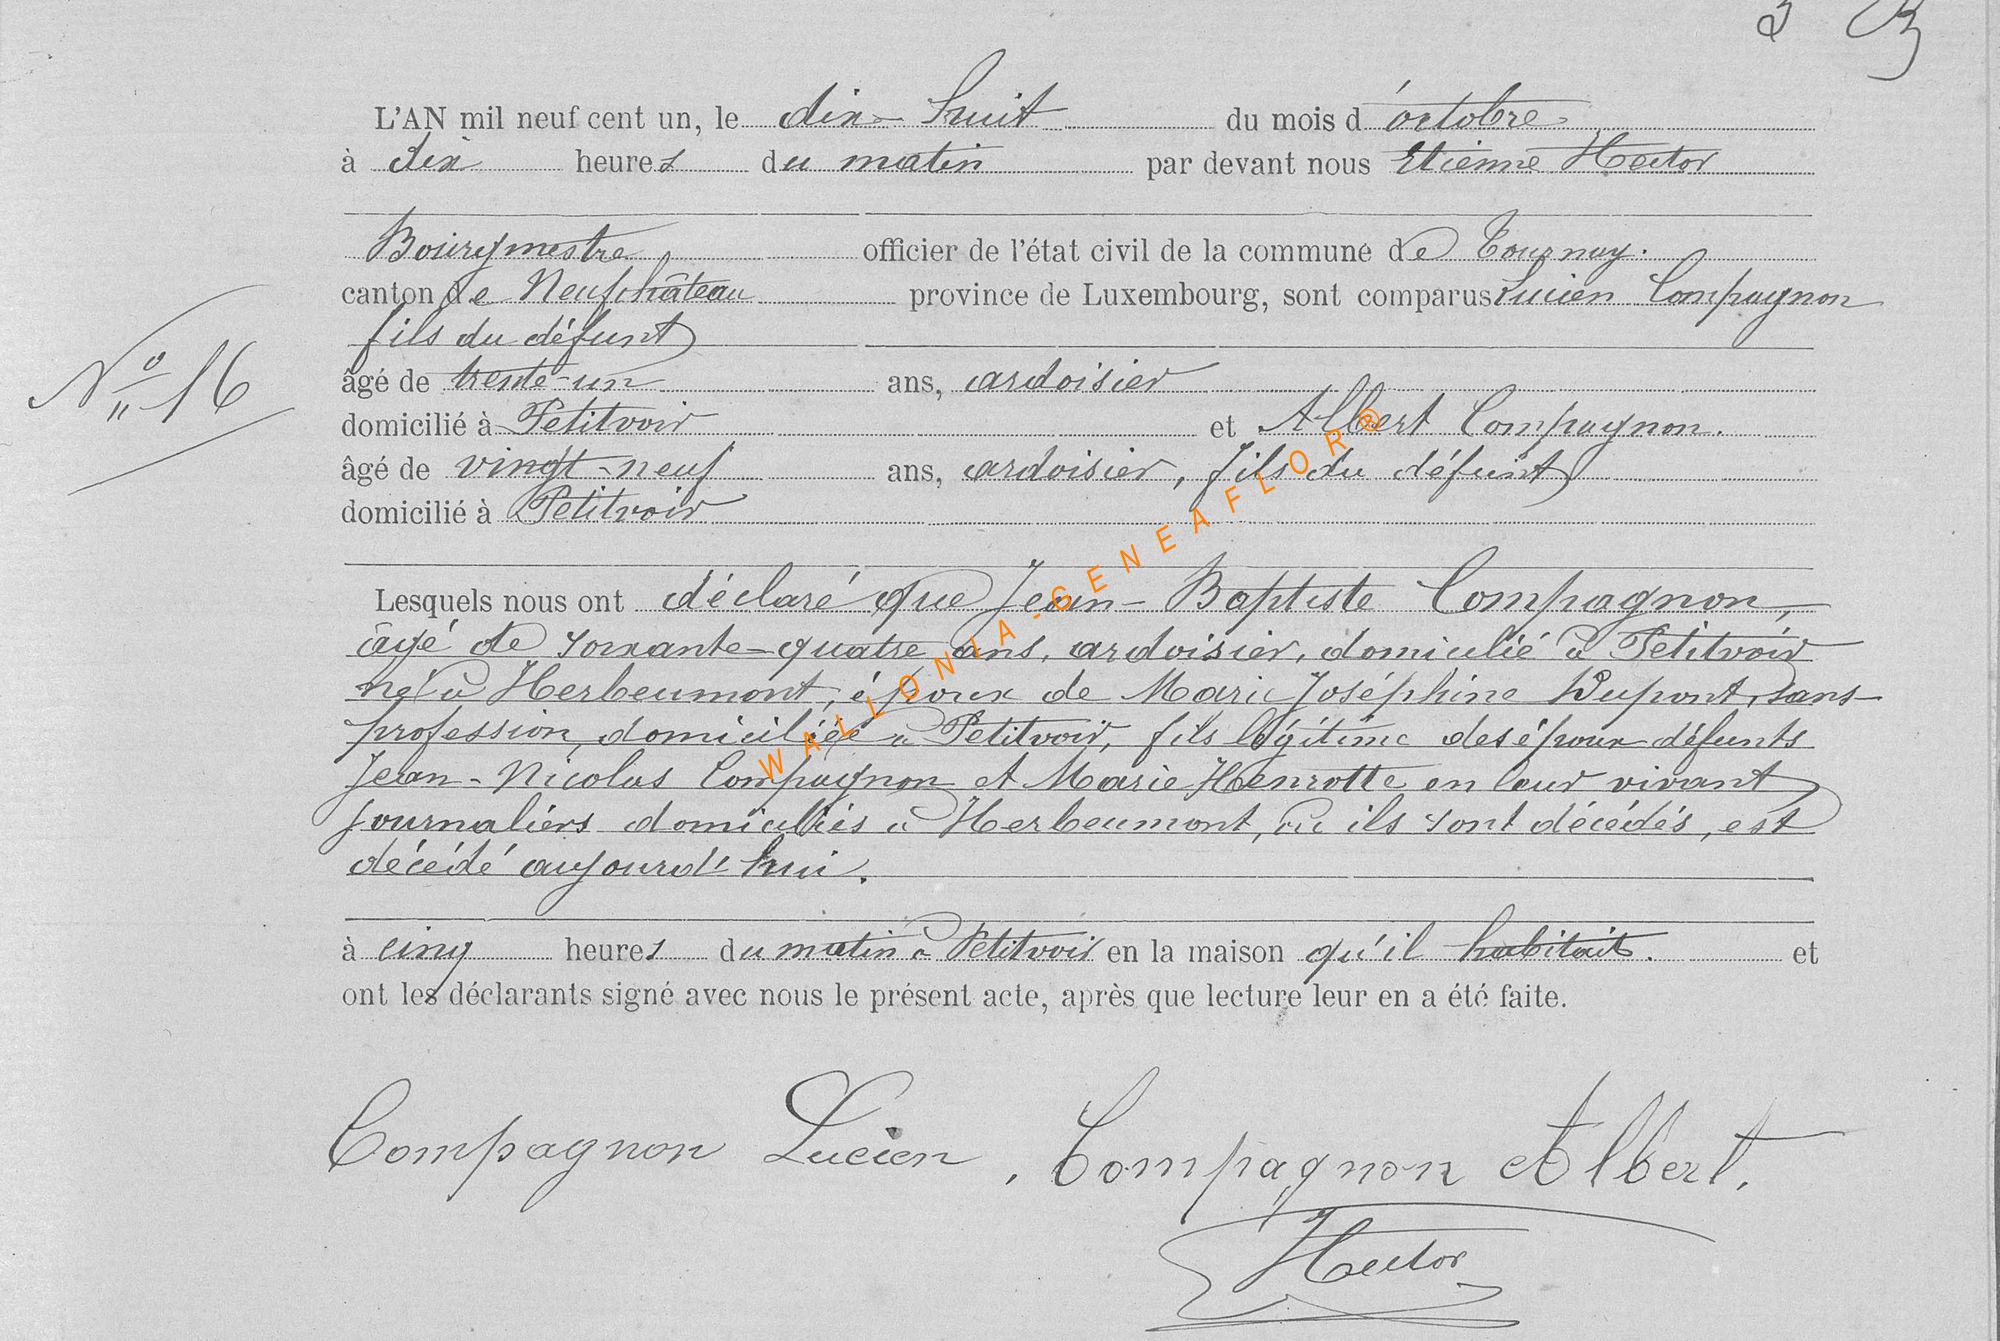 L'AN mil neuf cent un, le dix-huit du mois d'octobre
à dix heures du matin par devant nous Etienne Hector
Bourgmestre officier de l'état civil de la commune de Tournay.
canton de Neufchâteau province de Luxembourg, sont comparus Lucien Compagnon
fils du défunt
N° 16
âgé de trente-un ans, ardoisier
domicilié à Petitvoir et Albert Compagnon.
âgé de vingt-neuf ans, ardoisier, fils du défunt
domicilié à Petitvoir
Lesquels nous ont déclaré que Jean-Baptiste Compagnon,
âgé de soixante-quatre ans, ardoisier, domicilié à Petitvoir
né à Herbeumont, époux de Marie Joséphine Dupont, sans
profession, domiciliée à Petitvoir, fils légitime des époux défunts
Jean-Nicolas Compagnon et Marie Henrotte en leur vivant
journaliers domiciliés à Herbeumont, où ils sont décédés, est
décédé aujourd'hui.
à cinq heures du matin à Petitvoir en la maison qu'il habitait. et
ont les déclarants signé avec nous le présent acte, après que lecture leur en a été faite.
Compagnon Lucien, Compagnon Albert.
Hector
WALLONIA-GENEAFLOR®